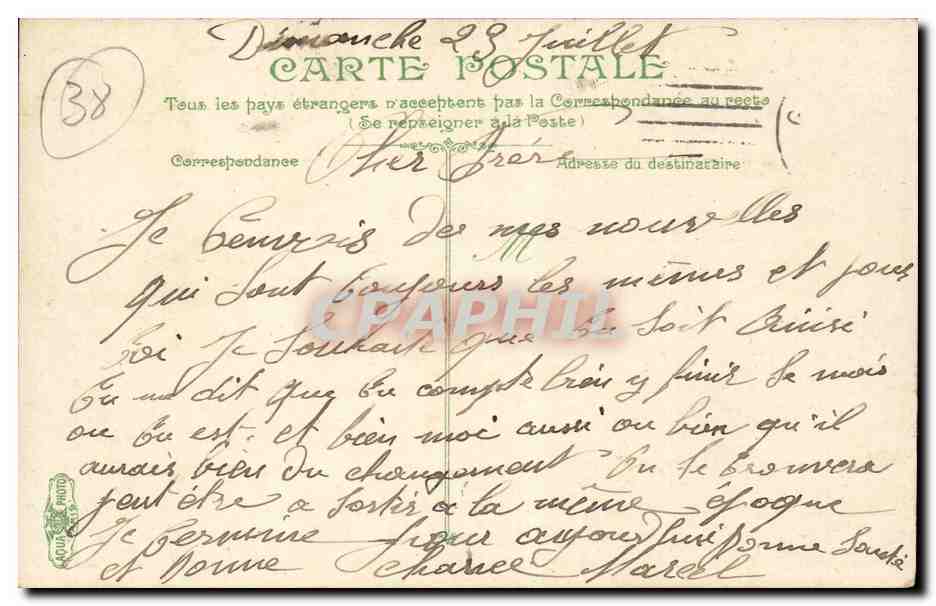 Dimanche 29 Juillet
38
CARTE POSTALE
Tous les pays étrangers n'acceptent pas la Correspondance au recto
(Se renseigner à la Poste)
Correspondance
Adresse du destinataire
Cher Frère
Je t'envois de mes nouvelles
qui sont toujours les mêmes et pour
toi Je souhait que tu soit ausi
tu me dit que tu compte bien y finir se mois
ou tu est. et bien moi aussi ou bien qu'il
aurais bien du changement tu te trouvera
peut être a sortir à la même époque
Je termine pour aujourd'hui Bonne Santé
et Bonne chance Marcel
CPAPHIL
AQUA PHOTO